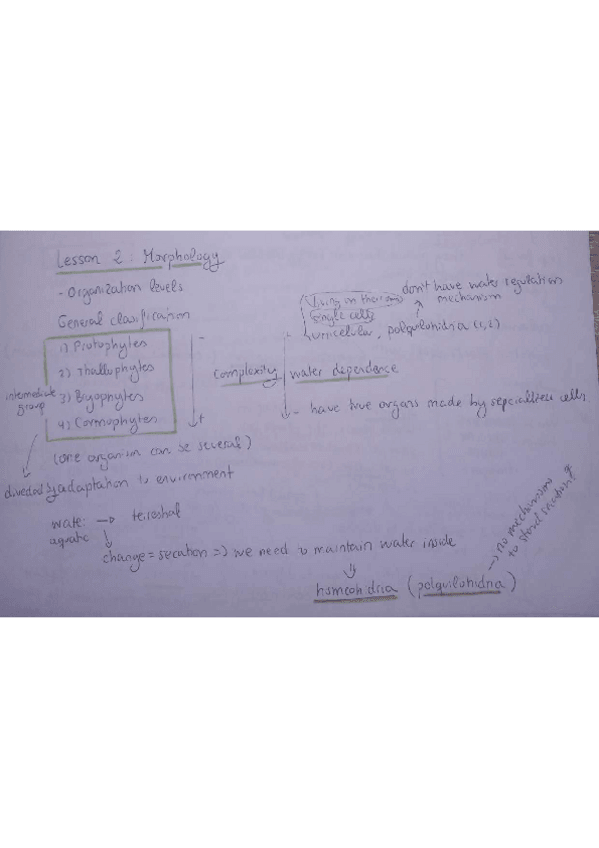 Lesson 2: Morphology
- Organization levels
General clasification
1) Protophytes
2) Thallophytes
3) Bryophytes
4) Cormophytes
intermediate
group
- +
complexity
water dependence
living on their own
single cells
unicellular, polquilohidria (1,2)
don't have water regulation
mechanism
- have true organs made by sepcialized cells
(one organism can be several)
diveded by adaptation to environment
water → terreshal
aquatic
change = secation => we need to maintain water inside
homeohidria (polquilohidria)
→ no mechanisms
to stand secation!